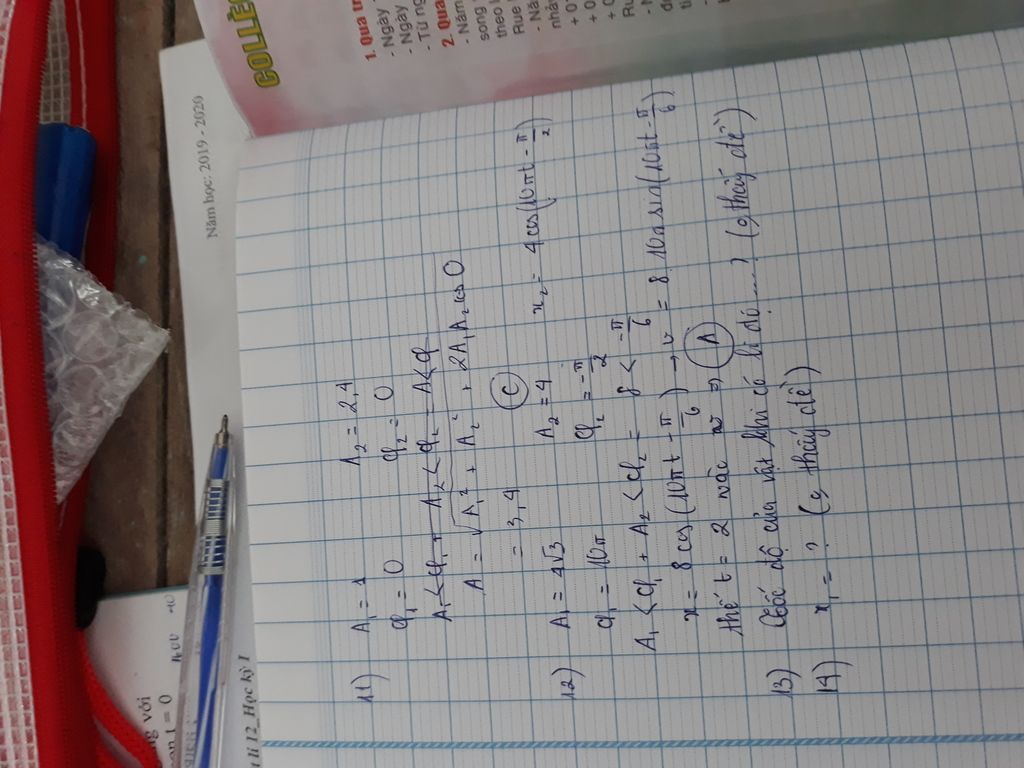 11) A₁ = 1 A₂ = 2,4
φ₁ = 0 φ₂ = 0
A₁ < φ₁ + A₂ < φ₂ = A < φ
A = √A₁² + A₂² + 2A₁A₂ cos 0
= 3,4 (C)
12) A₁ = 4√3 A₂ = 4 x₂ = 4 cos(10πt - π/2)
φ₁ = 10π φ₂ = -π/2
A₁ < φ₁ + A₂ < φ₂ = 8 < -π/6
x = 8 cos(10πt - π/6) → v = 8.10π sin(10πt - π/6)
thế t = 2 vào v ⇒ (A)
13) của vật khi có li độ ....? (ko thấy đề)
14) x₁ = ? (ko thấy đề)
Năm học: 2019 - 2020
lí 12_Học kỳ I
COLLÈ
1. Qua tr
- Ngày
- Ngày
- Từ ng
2. Quá
- Năm
song
theo l
Rue
- Nă
nhả
+ 0
g với
t = 0